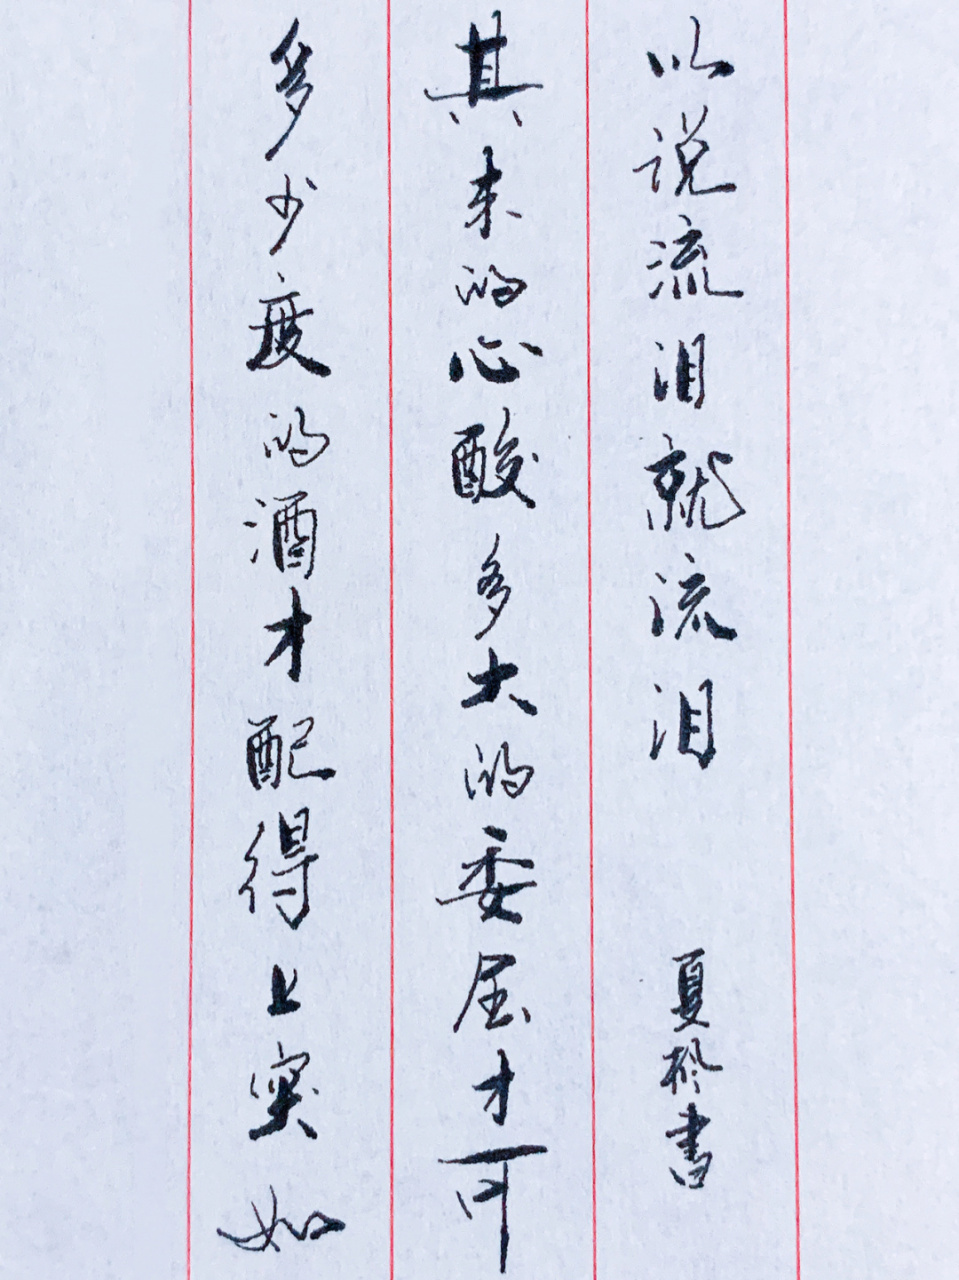 多少度的酒才配得上突如
其来的心酸多大的委屈才可
以说流泪就流泪
夏 書